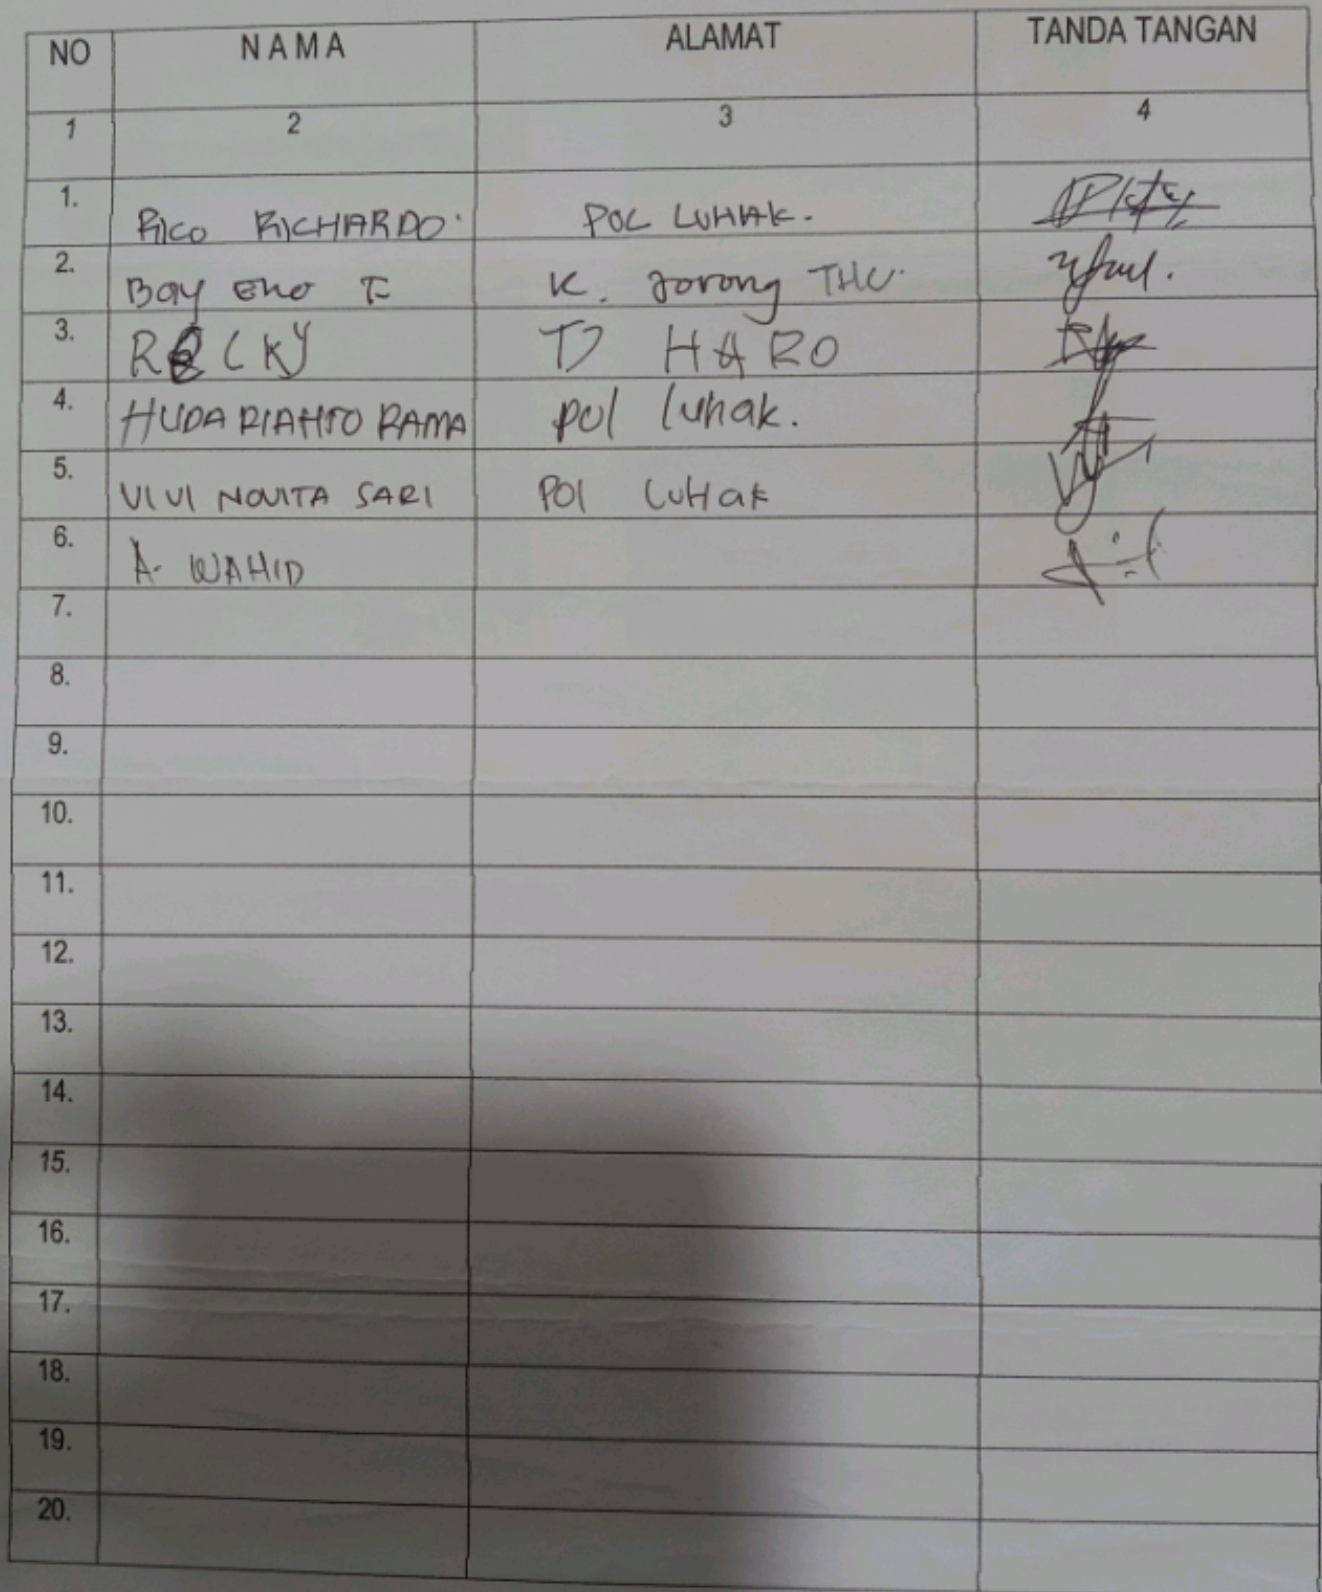 NO NAMA ALAMAT TANDA TANGAN
1 2 3 4
1. Rico RICHARDO POL LUHAK.
2. Boy Eko K. Jorong THC
3. ROCKY TJ HARO
4. HUDA RIAHTO RAMA Pol luhak.
5. VIVI NOVITA SARI POl LuHak
6. A. WAHID
7.
8.
9.
10.
11.
12.
13.
14.
15.
16.
17.
18.
19.
20.